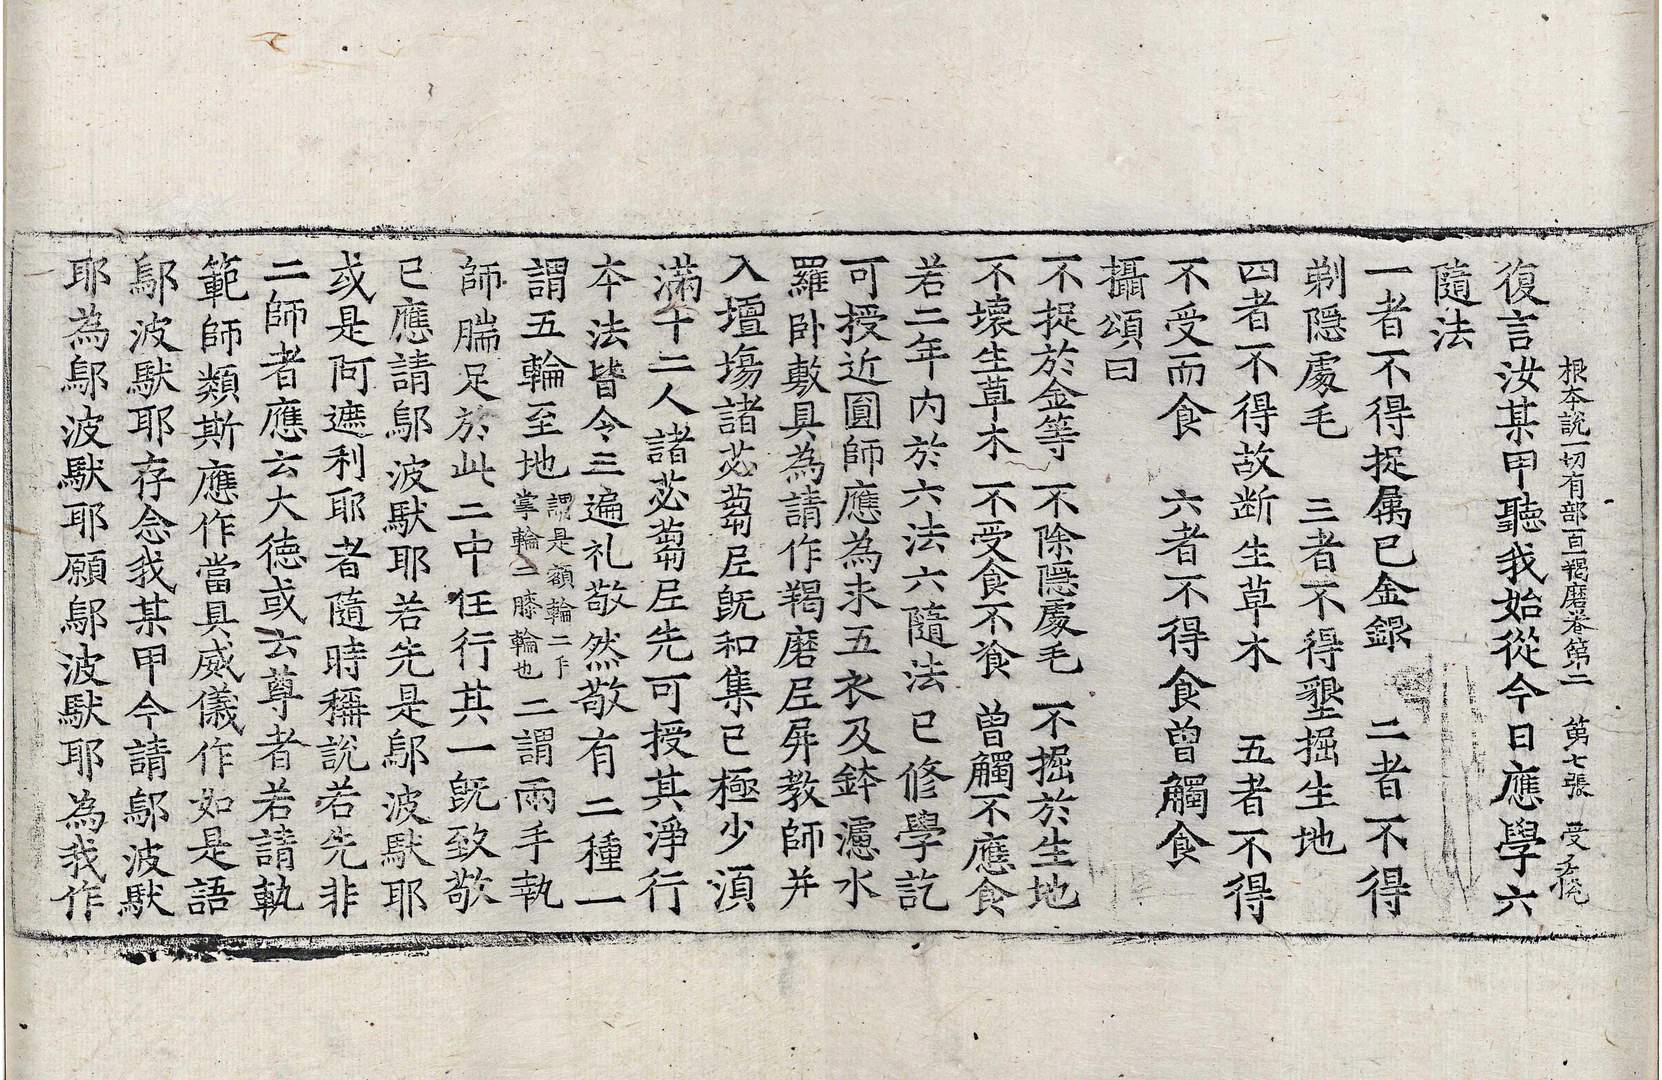 根本說一切有部百一羯磨卷第二 第七張 受
復言汝某甲聽我始從今日應學六
隨法
一者不得捉属已金銀 二者不得
剃隱處毛 三者不得墾掘生地
四者不得故断生草木 五者不得
不受而食 六者不得食曾觸食
攝頌曰
不捉於金等 不除隱處毛 不掘於生地
不壞生草木 不受食不飡 曾觸不應食
若二年內於六法六隨法已修學訖
可授近圓師應為求五衣及鉢濾水
羅卧敷具為請作羯磨𡰱屏教師并
入壇塲諸苾蒭𡰱旣和集已極少湏
滿十二人諸苾蒭𡰱先可授其淨行
本法皆令三遍礼敬然敬有二種一
謂五輪至地謂是額輪二手掌輪二膝輪也二謂兩手執
師腨足於此二中任行其一旣致敬
已應請鄔波馱耶若先是鄔波馱耶
或是阿遮利耶者隨時稱說若先非
二師者應云大德或云尊者若請軌
範師類斯應作當具威儀作如是語
鄔波馱耶存念我某甲今請鄔波馱
耶為鄔波馱耶願鄔波馱耶為我作